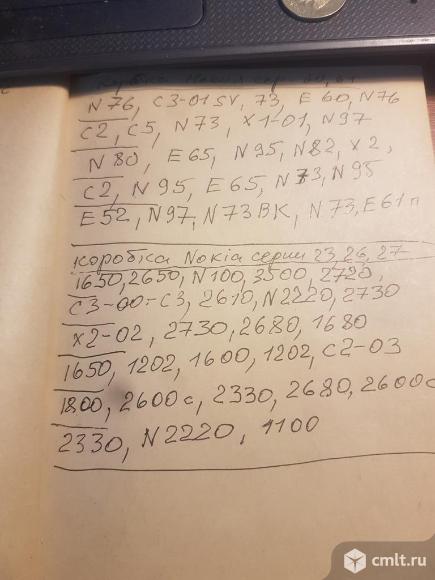 коробка Nokia сер
N76, C3-01 SV, 73, E60, N76
C2, C5, N73, X1-01, N97
N80, E65, N95, N82, X2,
C2, N95, E65, N73, N95
E52, N97, N73 BK, N73, E61 п
коробка Nokia серии 23, 26, 27
1650, 2650, N100, 3500, 2720,
C3-00-C3, 2610, N2220, 2730
X2-02, 2730, 2680, 1680
1650, 1202, 1600, 1202, C2-03
1800, 2600c, 2330, 2680, 2600c
2330, N2220, 1100
cmlt.ru